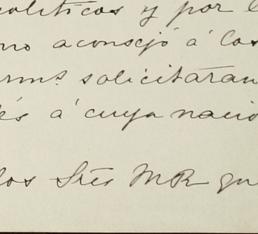 políticos y por l
no aconsejó á los
erms. solicitaran
és á cuya nacio
los Sres MR qu